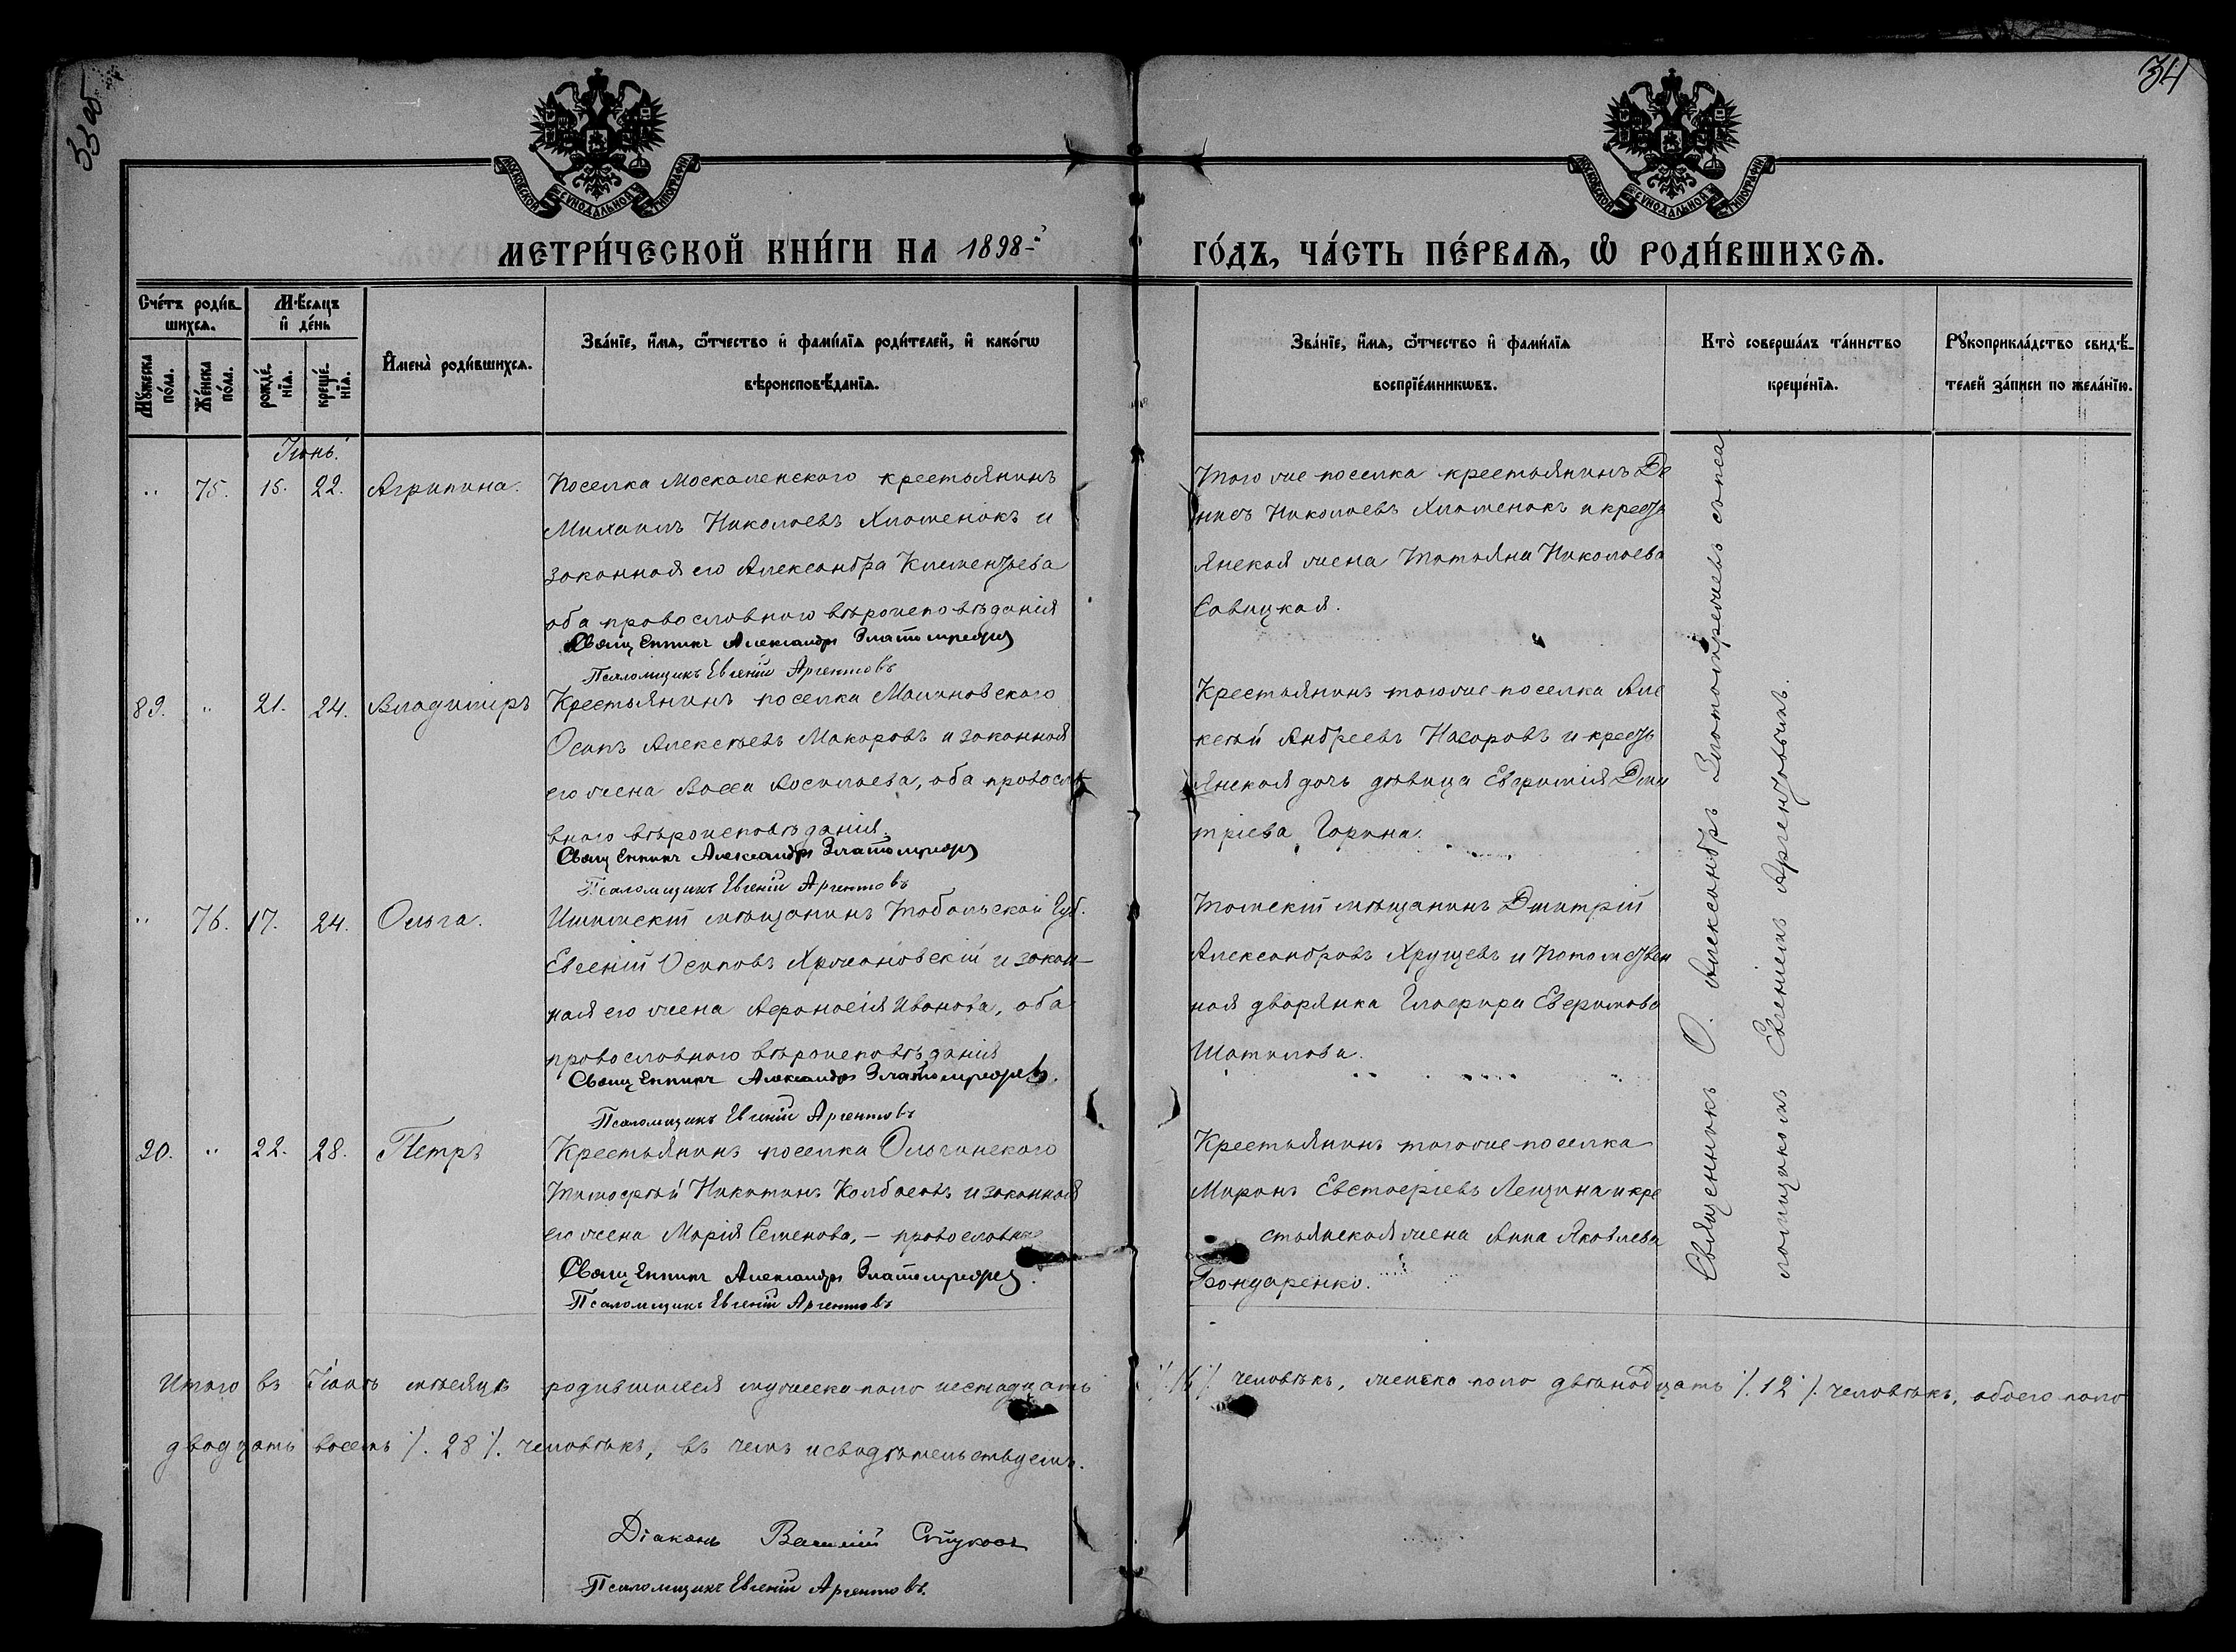 33 об
34
МОСКОВСКОЙ СѴНОДАЛЬНОЙ ТИПОГРАФІИ
МОСКОВСКОЙ СѴНОДАЛЬНОЙ ТИПОГРАФІИ
МЕТРИ́ЧЕСКОЙ КНИ́ГИ НА 1898-й
ГО́ДЪ, ЧА́СТЬ ПЕ́РВАѦ, Ѡ҆ РОДИ́ВШИХСѦ.
Сче́тъ роди́в-
шихсѧ.
Мѣ́сѧцъ
и҆ де́нь
Мꙋ́жеска по́ла.
Же́нска по́ла.
рожде́нїѧ.
креще́нїѧ.
И҆мена̀ роди́вшихсѧ.
Зва́нїе, и҆́мѧ, ѻ҆́тчество и҆ фами́лїѧ роди́телей, и҆ како́гѡ
вѣроисповѣ́данїѧ.
Зва́нїе, и҆́мѧ, ѻ҆́тчество и҆ фами́лїѧ
воспрїе́мникѡвъ.
Кто̀ соверша́лъ та́инство
креще́нїѧ.
Рꙋкоприкла́дство свидѣ́-
телей за́писи по жела́нїю.
Іюнь.
" 75. 15. 22. Агрипина.
Поселка Москаленского крестьянинъ
Михаилъ Николаевъ Хломенокъ и
законная его Александра Климентьева
оба православного вѣроисповѣданія
Священникъ Александръ Златомрежев
Псаломщикъ Евгеній Аргентовъ
Того же поселка крестьянинъ Де
нисъ Николаевъ Хломенокъ и крест
янская жена Татьяна Николаева
Савицкая.
89. " 21. 24. Владиміръ
Крестьянинъ поселка Малиновского
Осипъ Алексѣевъ Макаровъ и законная
его жена Васса Васильева, оба правосла
вного вѣроисповѣданія.
Священникъ Александръ Златомрежев
Псаломщикъ Евгеній Аргентовъ
Крестьянинъ того же поселка Але
ксѣй Андреевъ Назаровъ и крест
янская дочь дѣвица Евфимія Дми
тріева Горина.
" 76. 17. 24. Ольга.
Ишимскій мѣщанинъ Тобольской Губ.
Евгеній Осиповъ Хржановскій и закон-
ная его жена Афанасія Иванова, оба
православного вѣроисповѣданія
Священникъ Александръ Златомрежевъ.
Псаломщикъ Евгеній Аргентовъ
Томскій мѣщанинъ Дмитрій
Александровъ Хрущевъ и потомствен
ная дворянка Глафира Ефимова
Шатилова.
20. " 22. 28. Петръ
Крестьянинъ поселка Ольгинского
Тимофѣй Никитинъ Колбасовъ и законная
его жена Марія Семенова, - православн
Священникъ Александръ Златомрежев.
Псаломщикъ Евгеній Аргентовъ
Крестьянинъ того же поселка
Миронъ Евстафіевъ Лещина и кре
стьянская жена Анна Яковлева
Бондаренко.
Священникъ О. Александръ Златомрежевъ съ пса
ломщикомъ Евгеніемъ Аргентовымъ.
Итого въ Іюнѣ мѣсяцѣ родившихся мужеска пола шестнадцать
/. 16 /. человѣкъ, женска пола двѣнадцать /. 12 /. человѣкъ, обоего пола
двадцать восемь /. 28 /. человѣкъ, въ чемъ и свидѣтельствуемъ.
Діаконъ Василій
Псаломщикъ Евгеній Аргентовъ.